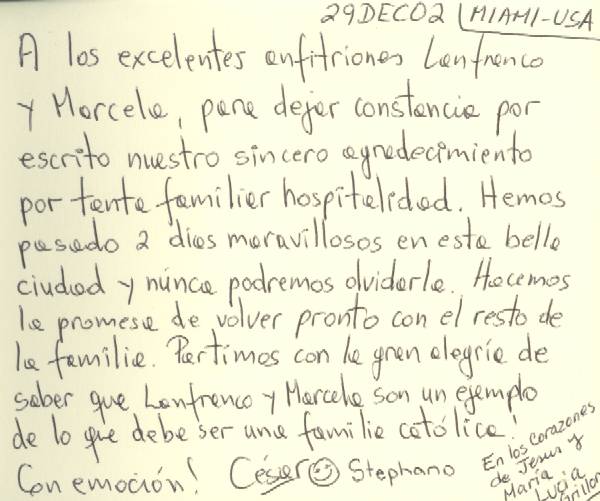 29DEC02 MIAMI-USA
A los excelentes anfitriones Lanfranco
y Marcela, para dejar constancia por
escrito nuestro sincero agradecimiento
por tanta familiar hospitalidad. Hemos
pasado 2 días maravillosos en esta bella
ciudad y núnca podremos olvidarla. Hacemos
la promesa de volver pronto con el resto de
la familia. Partimos con la gran alegría de
saber que Lanfranco y Marcela son un ejemplo
de lo que debe ser una familia católica!
Con emoción! César ☺ Stephano
En los corazones
de Jesus y
María
Lucia